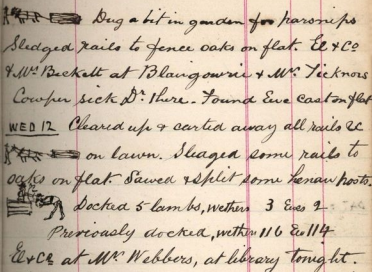 Dug a bit in garden for parsnips
Sledged rails to fence oaks on flat. El & Co
& Mrs Beckett at Blairgowrie & Mrs Ticknors
Cowper sick Dr there. Found Ewe cast on flat
WED 12 Cleared up & carted away all rails &c
on lawn. Sledged some rails to
oaks on flat. Sawed & split some henau posts.
Docked 5 lambs, wethers 3 Ewes 2
Previously docked, wethn 116 Ew 114
El & Co at Mrs Webbers, at library tonight.